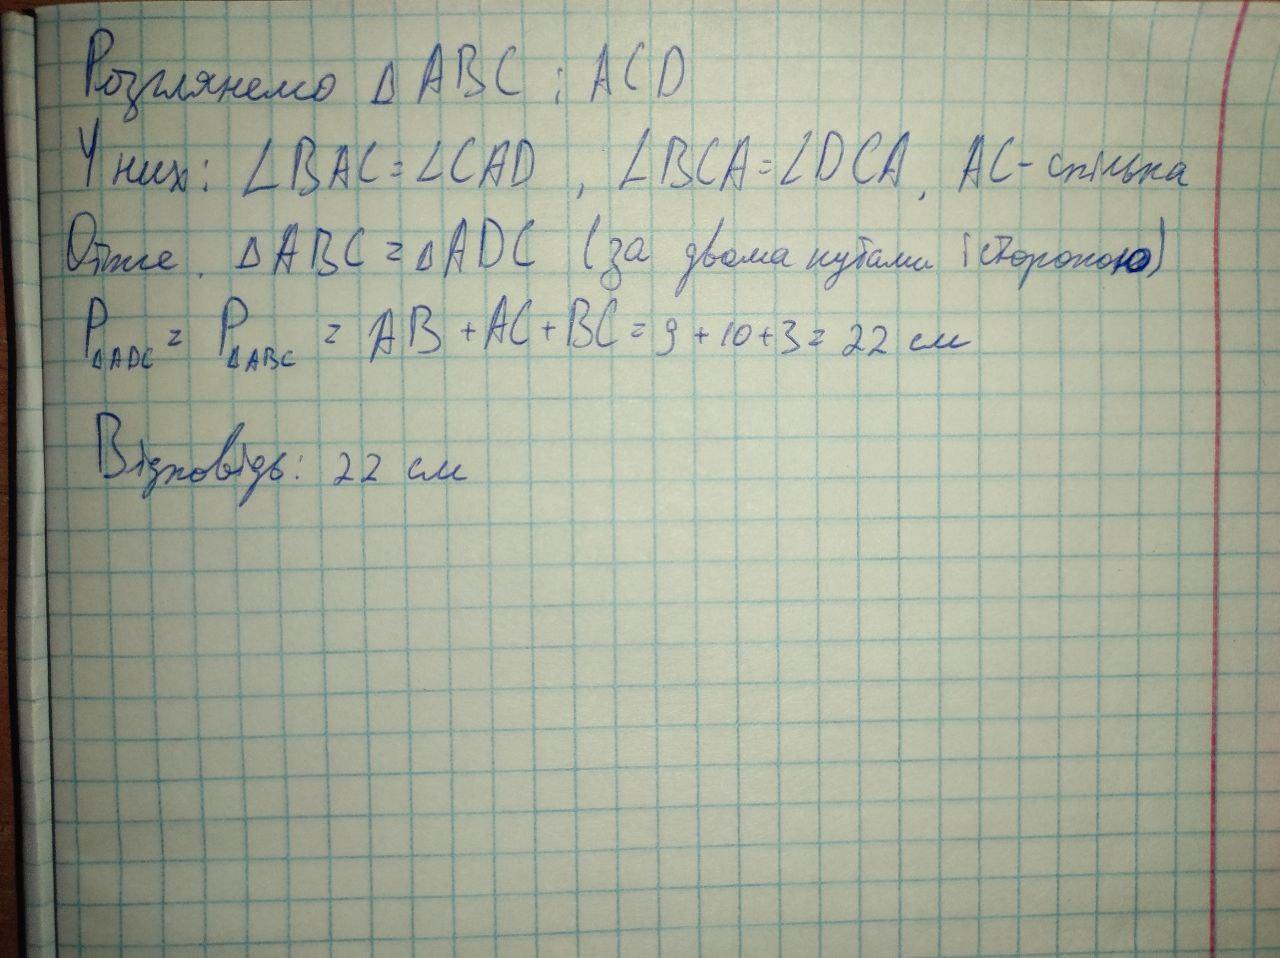 Розглянемо △ ABC і ACD
У них: ∠BAC=∠CAD, ∠BCA=∠DCA, AC-спільна
Отже, △ABC=△ADC (за двома кутами і стороною)
P△ADC = P△ABC = AB+AC+BC=9+10+3=22 см
Відповідь: 22 см